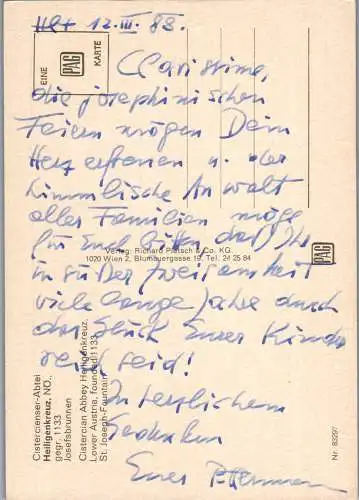 Hlkz 12. III. 83.
EINE PAG KARTE
Clarissime,
die josephinischen
Feiern mögen Dein
Herz erfreuen u. der
himmlische Anwalt
aller Familien möge
für Euch bitten daß Ihr
in süßer Zweisamkeit
viele lange Jahre durch
das Glück Eurer Kinder
reich seid!
In herzlichem
Gedenken
Euer
Verlag: Richard Pietsch & Co. KG.
1020 Wien 2, Blumauergasse 19, Tel. 24 25 84
PAG
Cistercienser-Abtei
Heiligenkreuz, NÖ.,
gegr. 1133
Josefsbrunnen
Cistercian Abbey Heiligenkreuz,
Lower Austria, founded 1133
St. Joseph-Fountain
Nr. 83297